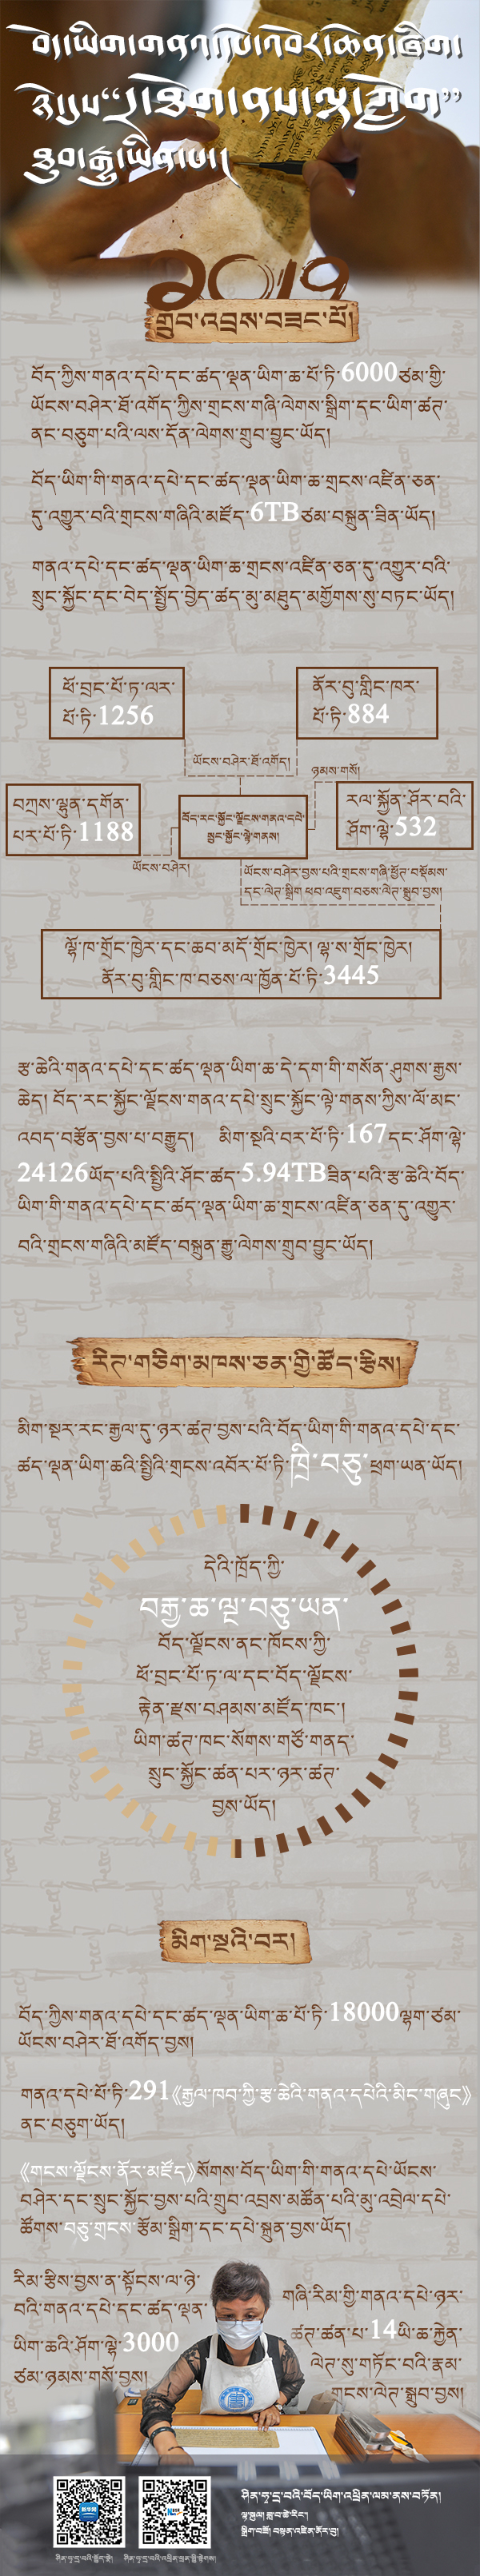 ༢༠༡༩
གྲུབ་འབྲས་བཟང་པོ།
བོད་ཀྱིས་གནའ་དཔེ་དང་ཚད་ལྡན་ཡིག་ཆ་པོ་ཏི་6000ཙམ་གྱི་
ཡོངས་བཤེར་ཐོ་འགོད་ཀྱིས་གྲངས་གཞི་ལེགས་སྒྲིག་དང་ཡིག་ཚན་
ནང་བཅུག་པའི་ལས་དོན་ལེགས་གྲུབ་བྱུང་ཡོད།
བོད་ཡིག་གི་གནའ་དཔེ་དང་ཚད་ལྡན་ཡིག་ཆ་གྲངས་འཛིན་ཅན་
དུ་འགྱུར་བའི་གྲངས་གཞིའི་མཛོད་6TBཙམ་བསྐྲུན་ཟིན་ཡོད།
གནའ་དཔེ་དང་ཚད་ལྡན་ཡིག་ཆ་གྲངས་འཛིན་ཅན་དུ་འགྱུར་བའི་
སྲུང་སྐྱོང་དང་བེད་སྤྱོད་བྱེད་ཚད་མུ་མཐུད་མགྱོགས་སུ་བཏང་ཡོད།
ཕོ་བྲང་པོ་ཏ་ལར་
པོ་ཏི་1256
ནོར་བུ་གླིང་ཁར་
པོ་ཏི་884
ཡོངས་བཤེར་ཐོ་འགོད།
ཉམས་གསོ།
བཀྲས་ལྷུན་དགོན་
པར་པོ་ཏི་1188
བོད་རང་སྐྱོང་ལྗོངས་གནའ་དཔེ་
སྲུང་སྐྱོང་ལྟེ་གནས།
རལ་སྐྱོན་ཤོར་བའི་
ཤོག་ལྷེ་532
ཡོངས་བཤེར།
ཡོངས་བཤེར་བྱས་པའི་གྲངས་གཞི་ཕྱོན་བསྡོམས་
དང་ལེན་སྒྲིག ཕབ་འཇུག་བཅས་ལེན་སྒྲུབ་བྱས།
ལྷོ་ཁ་གྲོང་ཁྱེར་དང་ཆབ་མདོ་གྲོང་ཁྱེར། ལྷ་ས་གྲོང་ཁྱེར།
ནོར་བུ་གླིང་ཁ་བཅས་ལ་ཁྱོན་པོ་ཏི་3445
རྩ་ཆེའི་གནའ་དཔེ་དང་ཚད་ལྡན་ཡིག་ཆ་དེ་དག་གི་གསོན་ཤུགས་རྒྱས་
ཆེད། བོད་རང་སྐྱོང་ལྗོངས་གནའ་དཔེ་སྲུང་སྐྱོང་ལྟེ་གནས་ཀྱིས་ལོ་མང་
འབད་བརྩོན་བྱས་པ་བརྒྱུད། མིག་སྔའི་བར་པོ་ཏི་167དང་ཤོག་ལྷེ་
24126ཡོད་པའི་སྤྱིའི་ཤོང་ཚད་5.94TBཟིན་པའི་རྩ་ཆེའི་བོད་
ཡིག་གི་གནའ་དཔེ་དང་ཚད་ལྡན་ཡིག་ཆ་གྲངས་འཛིན་ཅན་དུ་འགྱུར་
བའི་གྲངས་གཞིའི་མཛོད་བསྐྲུན་རྒྱུ་ལེགས་གྲུབ་བྱུང་ཡོད།
རིན་གཅིག་མཁས་ཅན་གྱི་ཚོད་རྩིས།
མིག་སྔར་རང་རྒྱལ་དུ་ཉར་ཚན་བྱས་པའི་བོད་ཡིག་གི་གནའ་དཔེ་དང་
ཚད་ལྡན་ཡིག་ཆའི་སྤྱིའི་གྲངས་འབོར་པོ་ཏི་ཁྲི་བཅུ་ཕྲག་ཡན་ཡོད།
དེའི་ཁྲོད་ཀྱི་
བརྒྱ་ཆ་ལྔ་བཅུ་ཡན་
བོད་ལྗོངས་ནང་ཁོངས་ཀྱི་
ཕོ་བྲང་པོ་ཏ་ལ་དང་བོད་ལྗོངས་
རྟེན་རྫས་བཤམས་མཛོད་ཁང་།
ཡིག་ཚན་ཁང་སོགས་གཙོ་གནད་
སྲུང་སྐྱོང་ཚན་པར་ཉར་ཚན་
བྱས་ཡོད།
མིག་སྔའི་བར།
བོད་ཀྱིས་གནའ་དཔེ་དང་ཚད་ལྡན་ཡིག་ཆ་པོ་ཏི་18000ལྷག་ཙམ་
ཡོངས་བཤེར་ཐོ་འགོད་བྱས།
གནའ་དཔེ་པོ་ཏི་291《རྒྱལ་ཁབ་ཀྱི་རྩ་ཆེའི་གནའ་དཔེའི་མིང་གཞུང》
ནང་བཅུག་ཡོད།
《གངས་ལྗོངས་ནོར་མཛོད》སོགས་བོད་ཡིག་གི་གནའ་དཔེ་ཡོངས་
བཤེར་དང་སྲུང་སྐྱོང་བྱས་པའི་གྲུབ་འབྲས་མཚོན་པའི་མུ་འབྲེལ་དཔེ་
ཚོགས་བཅུ་གྲངས་རྩོམ་སྒྲིག་དང་དཔེ་སྐྲུན་བྱས་ཡོད།
རིམ་རྩིས་བྱས་ན་སྟོངས་ལ་ཉེ་
བའི་གནའ་དཔེ་དང་ཚད་ལྡན་
ཡིག་ཆའི་ཤོག་ལྷེ་3000
ཙམ་ཉམས་གསོ་བྱས།
གཞི་རིམ་གྱི་གནའ་དཔེ་ཉར་
ཚན་ཚན་པ་14ཡི་ཆ་རྐྱེན་
ལེན་སུ་གཏོང་བའི་རྣམ་
གངས་ལེན་སྒྲུབ་བྱས།
ཤིན་ཧྭ་དྲ་བའི་བོད་ཡིག་འཕྲིན་ལམ་ནས་བཏོན།